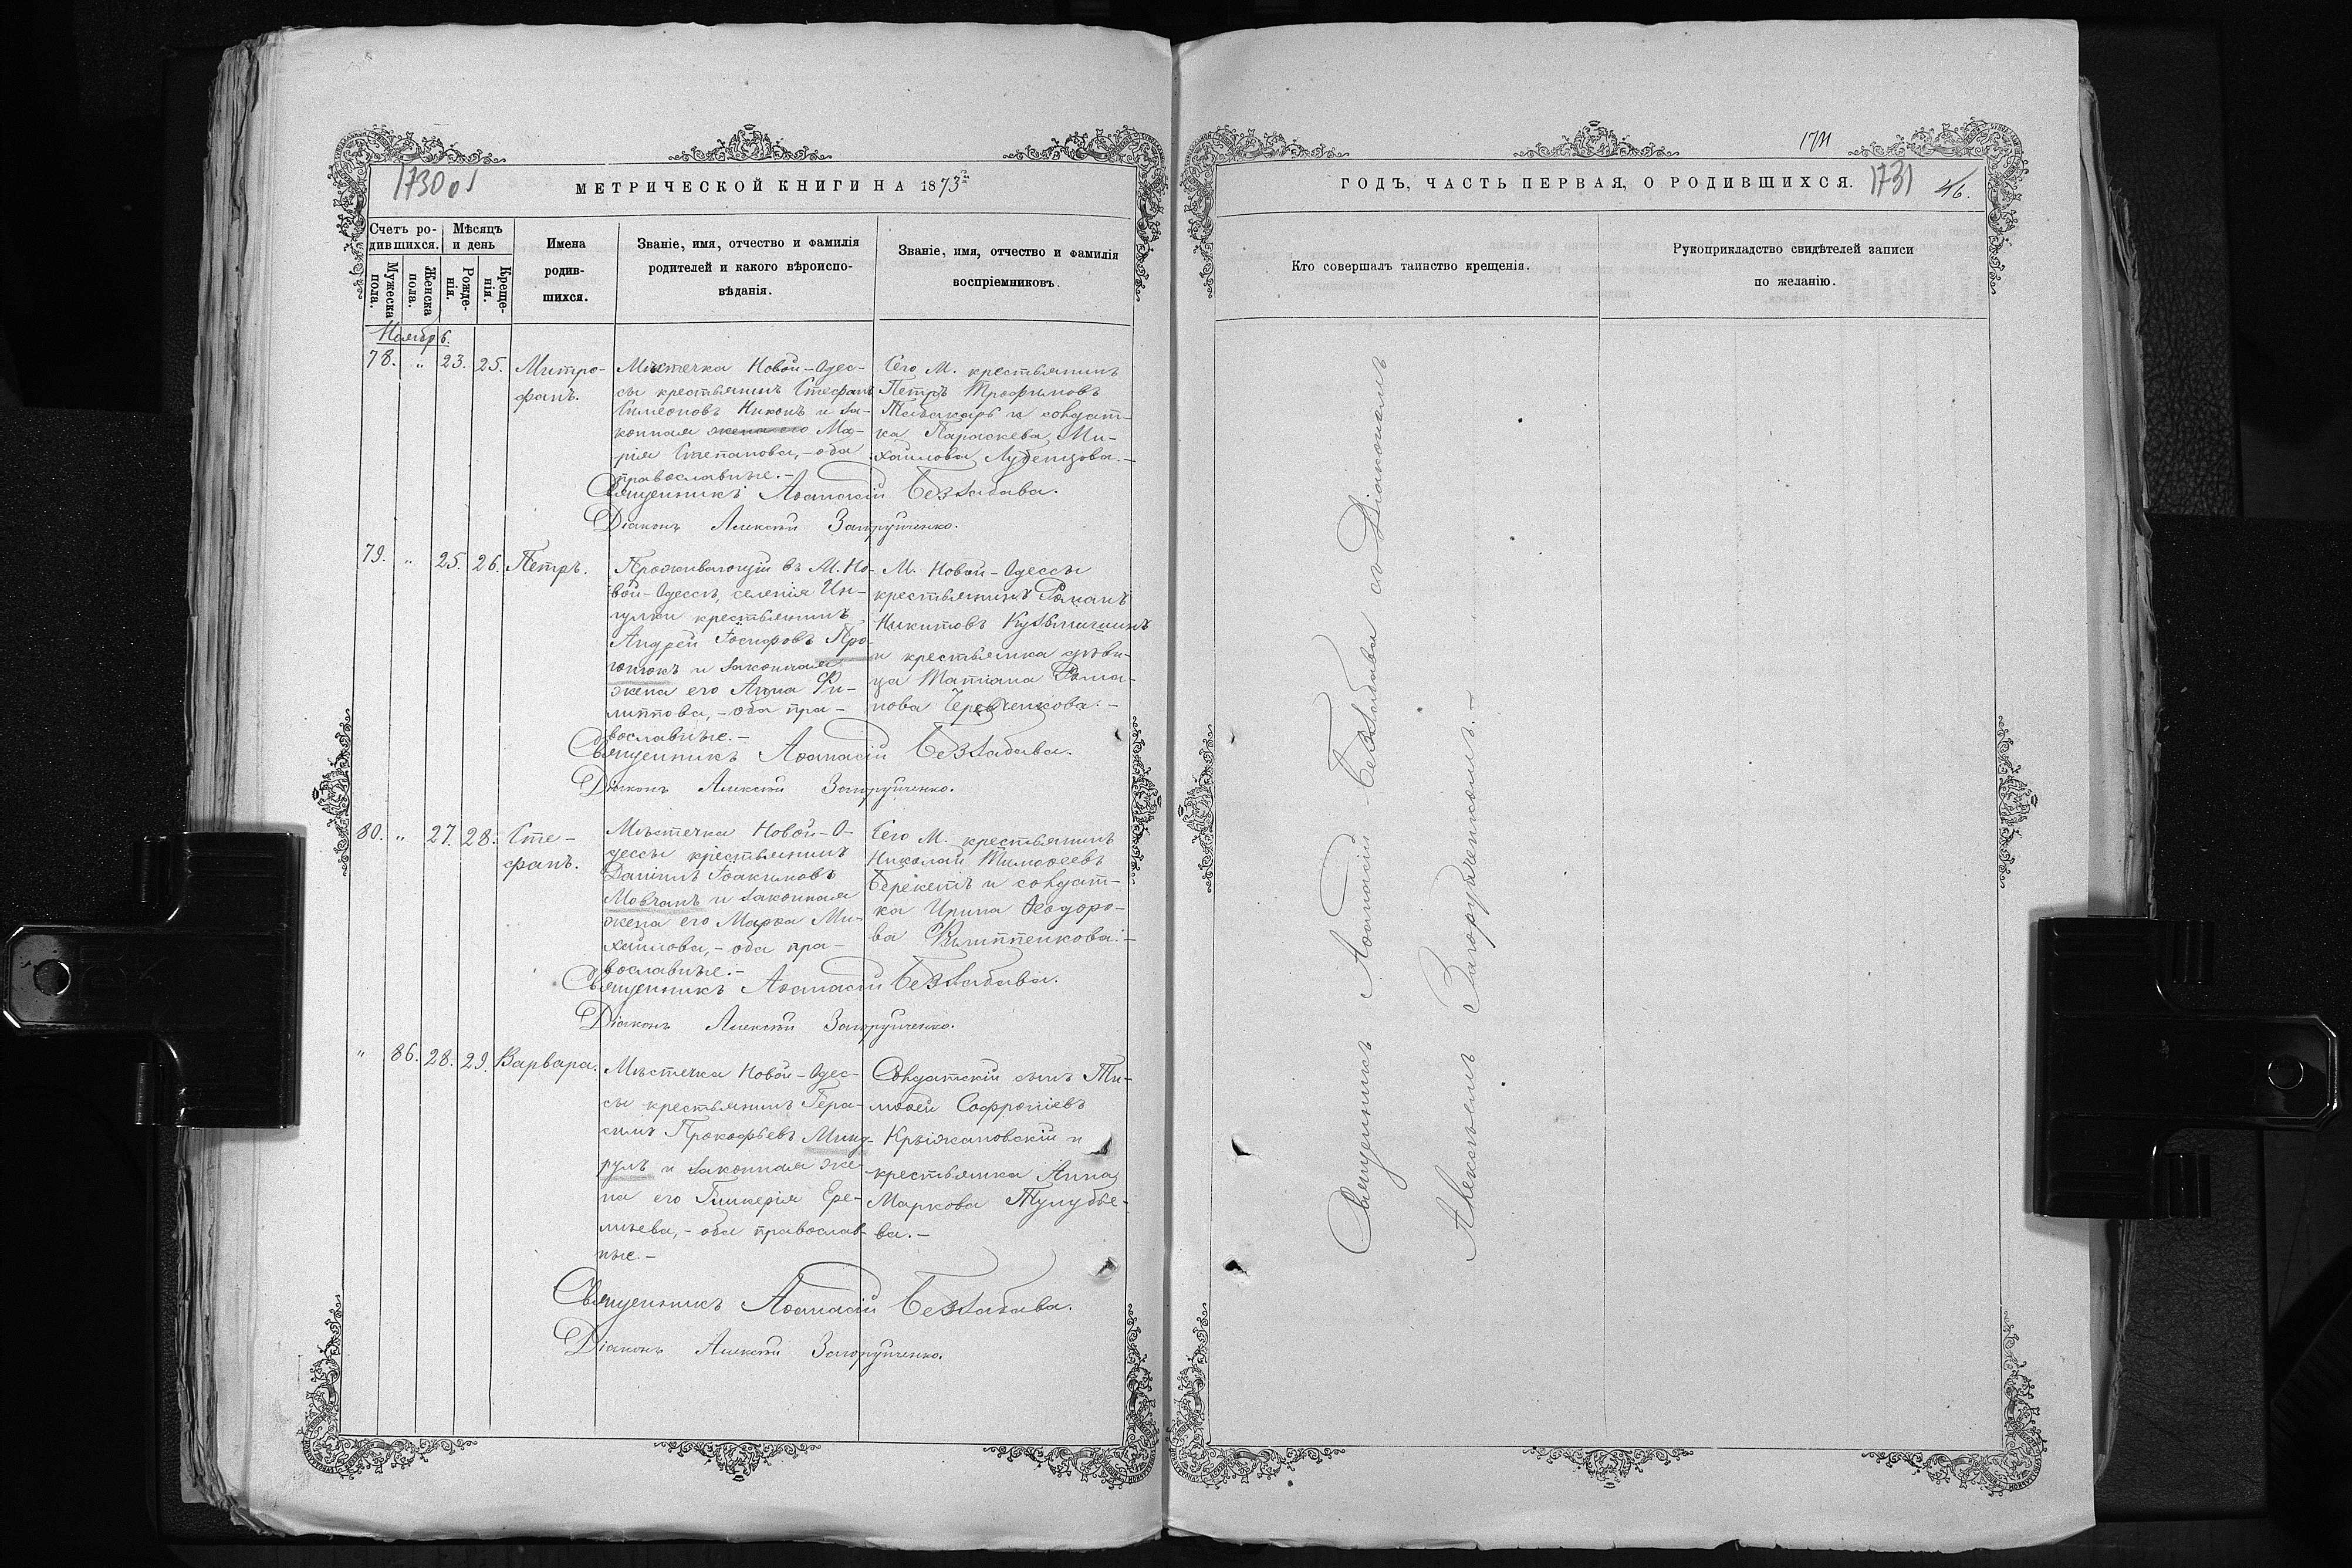 1730 об
МЕТРИЧЕСКОЙ КНИГИ НА 1873й
Счетъ ро-
дившихся.
Мѣсяцъ
и день
Мужеска
пола.
Женска
пола.
Рожде-
нія.
Креще-
нія.
Имена
родив-
шихся.
Званіе, имя, отчество и фамилія
родителей и какого вѣроиспо-
вѣданія.
Званіе, имя, отчество и фамилія
воспріемниковъ.
Ноябрь.
78. „ 23. 25. Митро-
фанъ.
Мѣстечка Новой-Одес-
сы крестьянинъ Стефанъ
Симеоновъ Никонъ и за-
конная жена его Ма-
рія Степанова, - оба
православные. -
Сего М. крестьянинъ
Петръ Трофимовъ
Табакарь и солдат-
ка Параскева Ми-
хайлова Лубенцова. -
Священникъ Аѳанасій Беззабава.
Діаконъ Алексѣй Загорупченко.
79. „ 25. 26. Петръ.
Проживающій въ М. Но-
вой-Одессѣ, селенія Ин-
гулки крестьянинъ
Андрей Іосифовъ Про-
нюкъ и законная
жена его Анна Фи-
липпова, - оба пра-
вославные. -
М. Новой-Одессы
крестьянинъ Романъ
Никитовъ Кузьмишинъ
и крестьянка дѣви-
ца Татіана Рома-
нова Черевченкова. -
Священникъ Аѳанасій Беззабава.
Діаконъ Алексѣй Загорупченко.
80. „ 27. 28. Сте-
фанъ.
Мѣстечка Новой-О-
дессы крестьянинъ
Даніилъ Іоакимовъ
Мовчанъ и законная
жена его Марѳа Ми-
хайлова, - оба пра-
вославные. -
Сего М. крестьянинъ
Николай Тимоѳеевъ
Берекетъ и солдат-
ка Ирина Ѳеодоро-
ва Филиппенкова. -
Священникъ Аѳанасій Беззабава.
Діаконъ Алексѣй Загорупченко.
„ 86. 28. 29. Варвара.
Мѣстечка Новой-Одес-
сы крестьянинъ Гера-
симъ Прокофьевъ Минд-
рулъ и законная же-
на его Гликерія Ере-
мѣева, - оба православ-
ные. -
Солдатскій сынъ Ти-
моѳей Софроніевъ
Крыжановскій и
крестьянка Анна
Маркова Тулубье-
ва. -
Священникъ Аѳанасій Беззабава.
Діаконъ Алексѣй Загорупченко.
1731
ГОДЪ, ЧАСТЬ ПЕРВАЯ, О РОДИВШИХСЯ.
1731
46.
Кто совершалъ таинство крещенія.
Рукоприкладство свидѣтелей записи
по желанію.
Священникъ Аѳанасій Беззабава съ Діакономъ
Алексѣемъ Загорупченкомъ. -